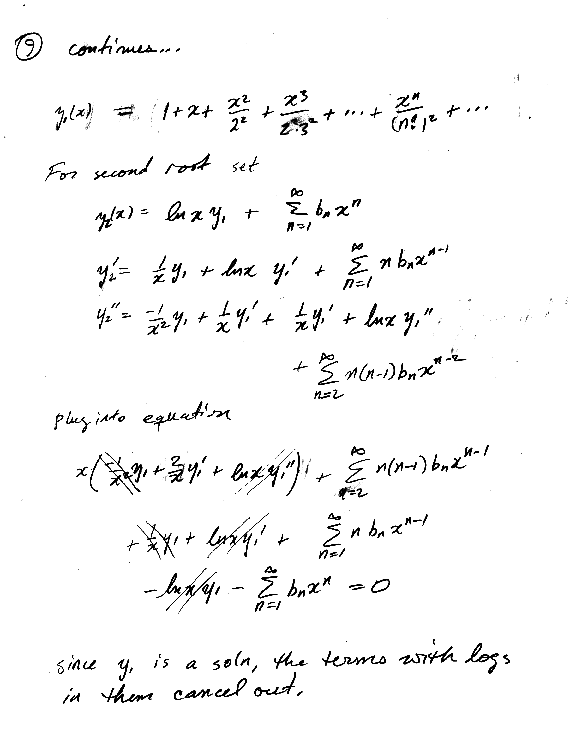 ⑨ continues...
y₁(x) = 1 + x + x²/2² + x³/2²·3² + ... + xⁿ/(n!)² + ...
For second root set
y₂(x) = ln x y₁ + ∑_{n=1}^∞ bₙxⁿ
y₂' = 1/x y₁ + ln x y₁' + ∑_{n=1}^∞ n bₙxⁿ⁻¹
y₂'' = -1/x² y₁ + 1/x y₁' + 1/x y₁' + ln x y₁''
+ ∑_{n=2}^∞ n(n-1)bₙxⁿ⁻²
plug into equation
x(-1/x² y₁ + 2/x y₁' + ln x y₁'') + ∑_{n=2}^∞ n(n-1)bₙxⁿ⁻¹
+ 1/x y₁ + ln x y₁' + ∑_{n=1}^∞ n bₙxⁿ⁻¹
- ln x y₁ - ∑_{n=1}^∞ bₙxⁿ = 0
since y₁ is a soln, the terms with logs
in them cancel out.